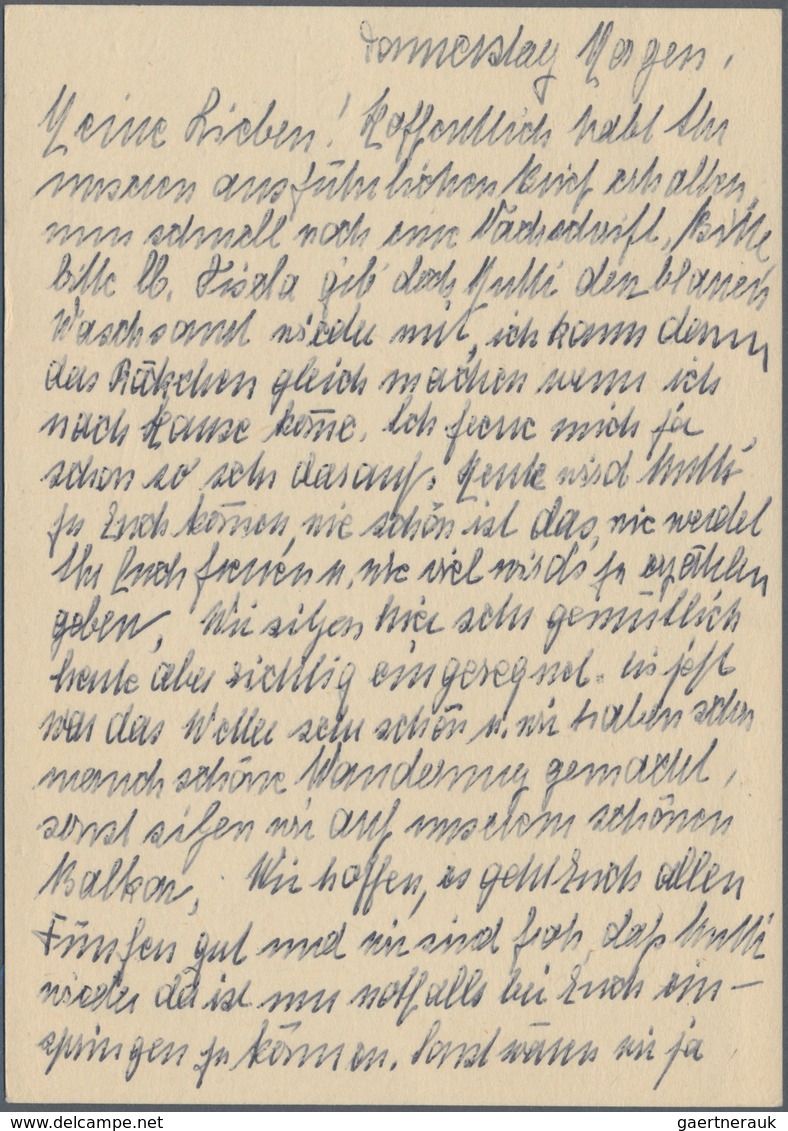 Donnerstag Morgen,
Meine Lieben! Hoffentlich habt Ihr
unseren ausführlichen Brief erhalten,
nun schnell noch eine Nachschrift, Bitte
bitte lb. Gisela gib' doch Mutti den blauen
Waschsamt wieder mit, ich kann dann
das Röckchen gleich machen wenn ich
nach Hause kom̅e. Ich freue mich ja
schon so sehr darauf. Heute wird Mutti
zu Euch kom̅en, wie schön ist das, wie werdet
Ihr Euch freuen u. wie viel wird's zu erzählen
geben, Wir sitzen hier sehr gemütlich
heute aber richtig eingeregnet. bis jetzt
war das Wetter sehr schön u. wir haben schon
manch schöne Wanderung gemacht,
sonst sitzen wir auf unserem schönen
Balkon, Wir hoffen, es geht Euch allen
Fünfen gut und wir sind froh, daß Mutti
wieder da ist um notfalls bei Euch ein-
springen zu können. Sonst wären wir ja
gaertnerauk @ delcampe.net